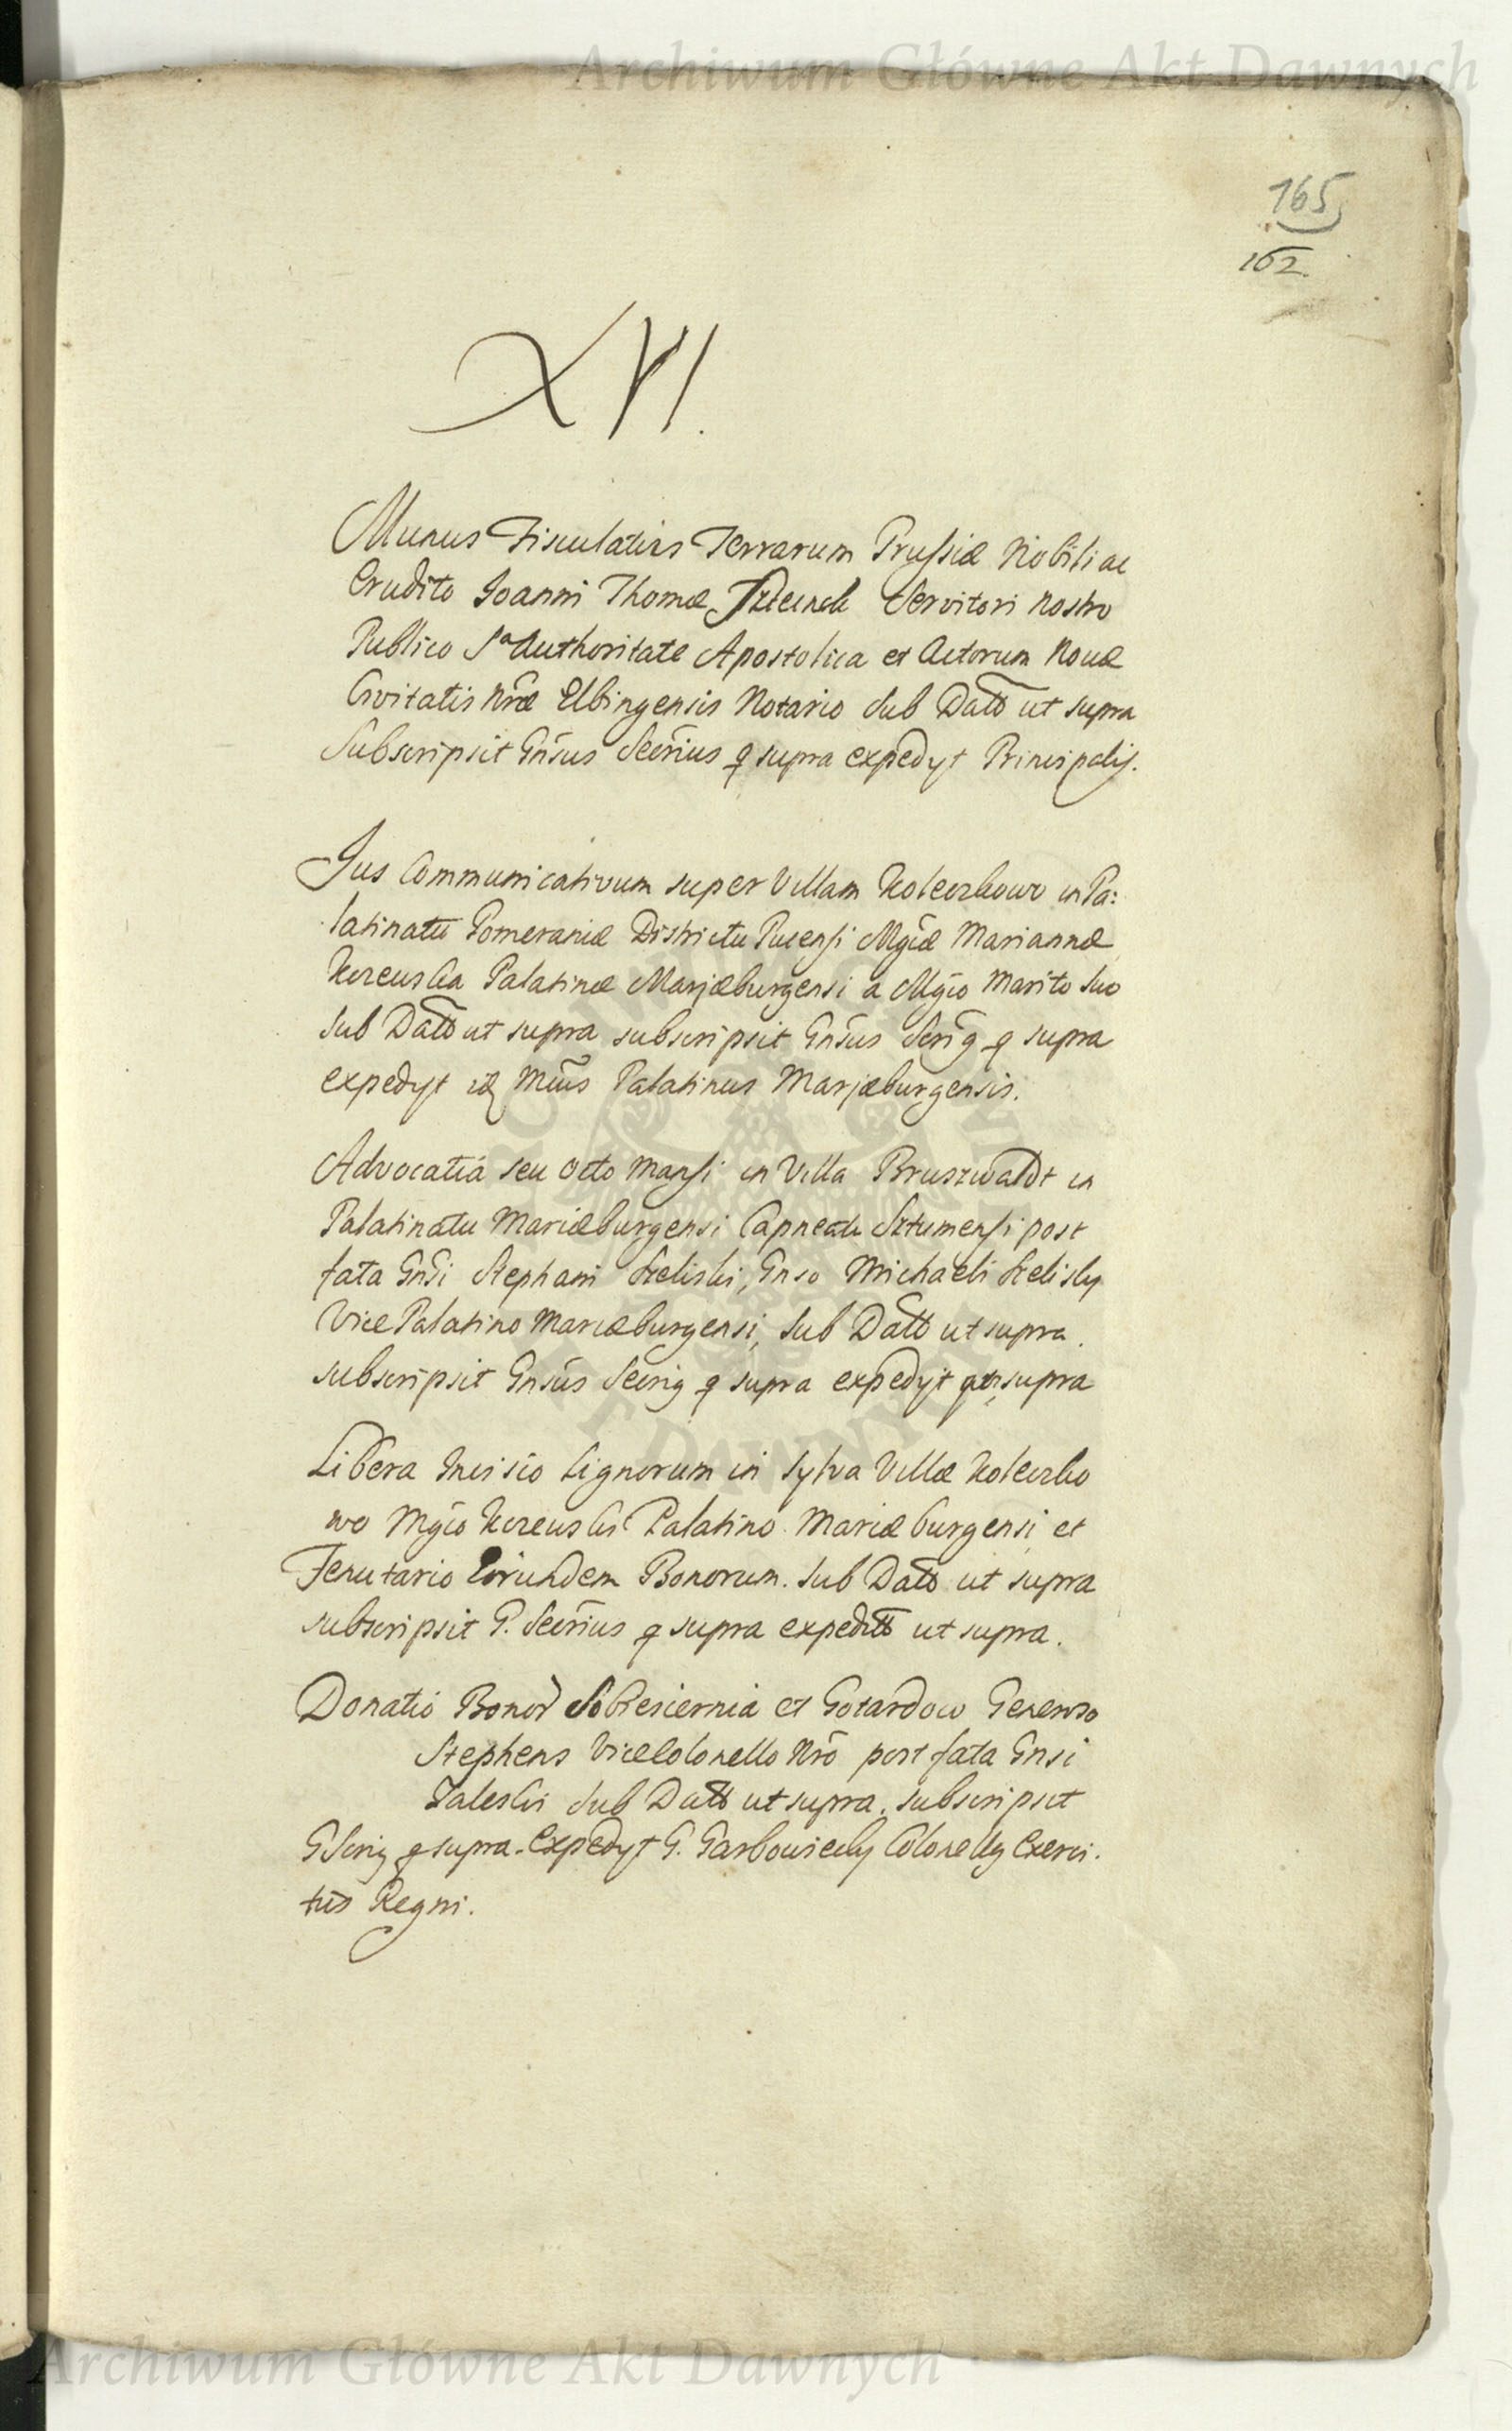 Archiwum Główne Akt Dawnych
165
162
XVI.
Munus Fisculatus Terrarum Prussiæ Nobili ac
Erudito Joanni Thomæ Servitori nostro
Publico Sa Authoritate Apostolica et Actorum Novæ
Civitatis Nræ Elbingensis Notario Sub Datto ut supra
Subscripsit Gnsus Secrius q supra expedyt Principalis.
Jus Communicativum super Villam Koleczkowo in Pa:
latinatu Pomeraniæ Districtu Pucensi Mgcæ Mariannæ
Kczewska Palatinæ Marjæburgensi a Mgco Marito suo
Sub Datto ut supra subscripsit Gnsus Scrig q supra
expedyt Palatinus Marjæburgensis.
Advocatia seu octo mansi in Villa Bruszwaldt in
Palatinatu Mariæburgensi Capneatu Sztumensi post
fata Gnsi Stephani Szeliski, Gnso Michaeli Szelisky
Vice Palatino Mariæburgensi, Sub Datto ut supra.
subscripsit Gnsus Secrig q supra expedyt supra
Libera Incisio Lignorum in Sylva Villæ Koleczko
wo Mgco Kczewski Palatino Mariæburgensi et
Tenutario Eorundem Bonorum. Sub Datto ut supra
subscripsit G. Secrius q supra expeditt ut supra.
Donatio Bonor Sobiesiernia et Gotardow Generoso
Stephens Vicecolonello Nro post fata Gnsi
Zaleski Sub Datto ut supra. subscripsit
G Scrig q supra. Expedyt G. Garbowiecky Colonellg Exerci:
tus Regni.
Archiwum Główne Akt Dawnych